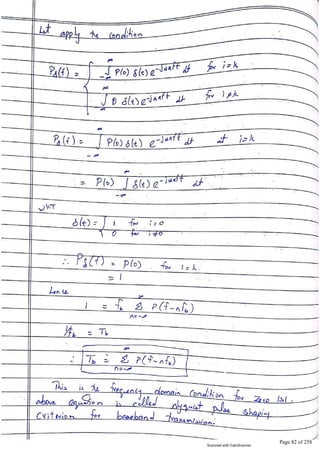 Let apply the condition
Pδ(f) = { ∫_{-∞}^{∞} P(0) δ(t) e^{-j2πft} dt for i=k
∫_{-∞}^{∞} 0 δ(t) e^{-j2πft} dt for i≠k
Pδ(f) = ∫_{-∞}^{∞} P(0) δ(t) e^{-j2πft} dt at i=k
= P(0) ∫_{-∞}^{∞} δ(t) e^{-j2πft} dt
WKT
δ(t) = { 1 for i=0
0 for i≠0
∴ Pδ(f) = P(0) for i=k.
= 1
Hence
1 = f_b Σ_{n=-∞}^{∞} P(f-nf_b)
1/f_b = T_b
∴ T_b = Σ_{n=-∞}^{∞} P(f-nf_b)
This is the frequency domain condition for zero ISI.
above equation is called nyquist pulse shaping
criterion for baseband transmission.
Scanned with CamScanner
Page 82 of 258